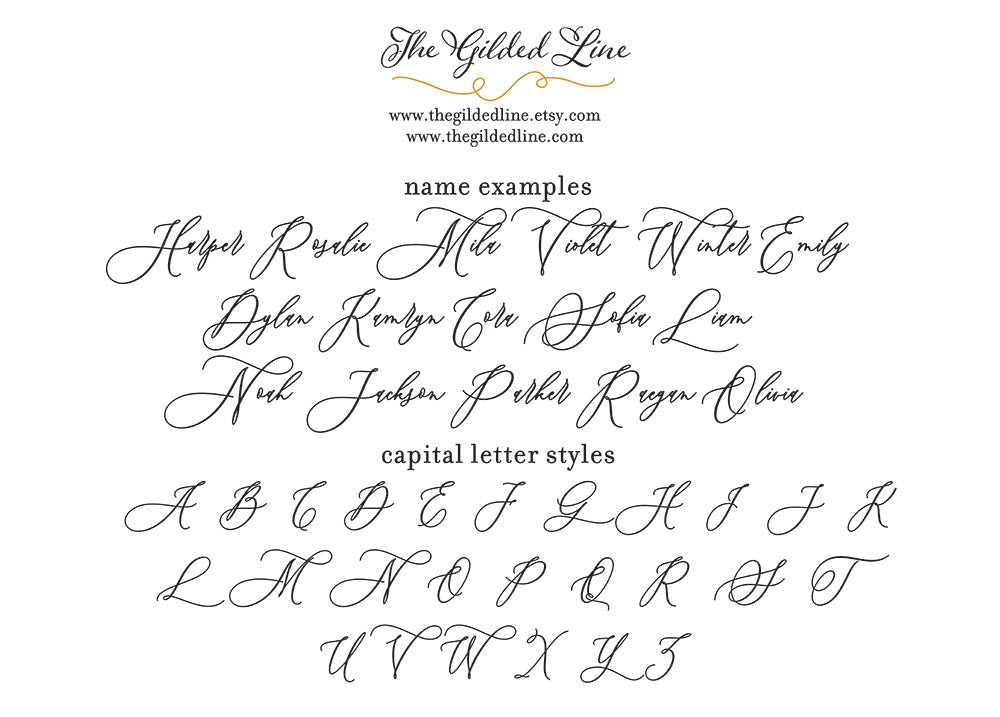 The Gilded Line
www.thegildedline.etsy.com
www.thegildedline.com
name examples
Harper Rosalie Mila Violet Winter Emily
Dylan Kamryn Cora Sofia Liam
Noah Jackson Parker Raegan Olivia
capital letter styles
A B C D E F G H I J K
L M N O P Q R S T
U V W X Y Z